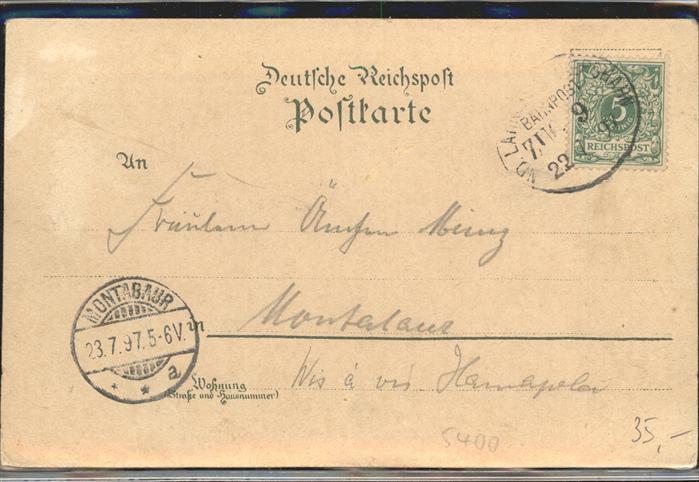 Deutsche Reichspost
Postkarte
BAHNPOST
ZUG 9
22
5
REICHSPOST
An
Fräulein Ännchen
MONTABAUR
23.7.97.5-6V.
* * a
in
Montabaur
Wohnung
(Straße und Hausnummer)
Vis à vis
5400
35,-